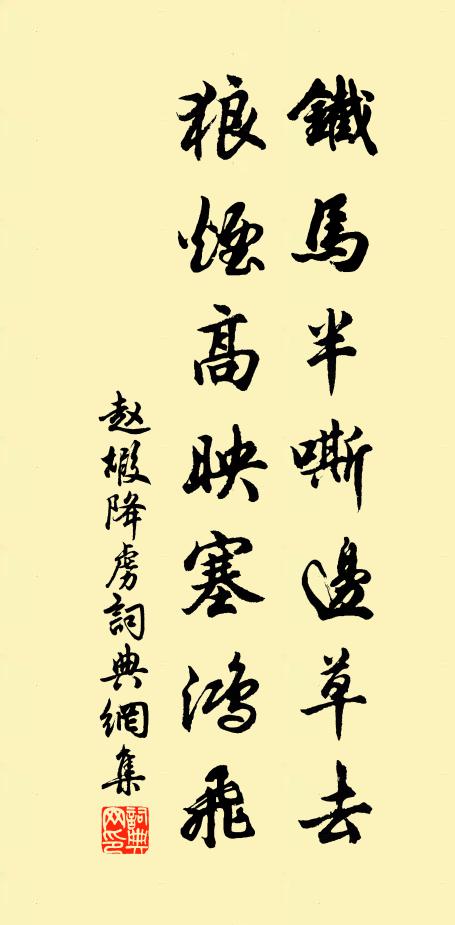 鐵馬半嘶邊草去
狼煙高映塞鴻飛
赵嘏降虏詞典網集
詞典網印